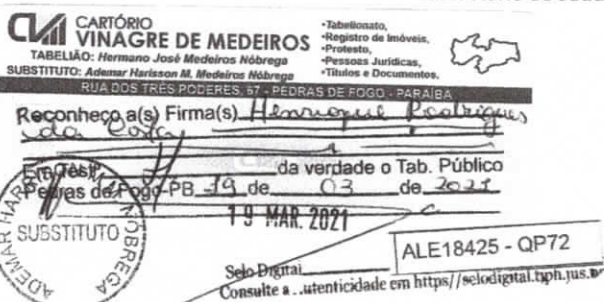 CVM CARTÓRIO
VINAGRE DE MEDEIROS
TABELIÃO: Hermano José Medeiros Nóbrega
SUBSTITUTO: Ademar Harisson M. Medeiros Nóbrega
•Tabelionato,
•Registro de Imóveis,
•Protesto,
•Pessoas Jurídicas,
•Títulos e Documentos.
RUA DOS TRÊS PODERES, 67 - PEDRAS DE FOGO - PARAÍBA
Reconheço a(s) Firma(s) Henrique Rodrigues
da
Em Testº da verdade o Tab. Público
Pedras de Fogo-PB 19 de 03 de 2021
19 MAR. 2021
SUBSTITUTO
ADEMAR HAR NÓBREGA
ALE18425 - QP72
Selo Digital
Consulte a . .utenticidade em https//selodigital.tjpb.jus.br